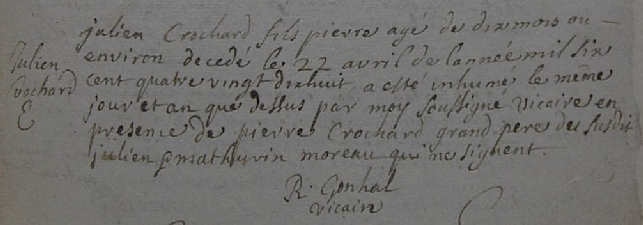 julien Crochard fils pierre agé de dix mois ou
environ decedé le 22 avril de lannée mil six
julien
cent quatre vingt dixhuit, a esté inhumé le même
Crochard
jour et an que dessus par moy soussigné vicaire en
presence de pierre Crochard grand pere du susdit
julien mathurin moreau qui ne signent.
R. Gonhal
vicaire